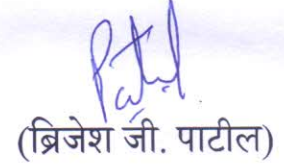 Patil
(ब्रिजेश जी. पाटील)